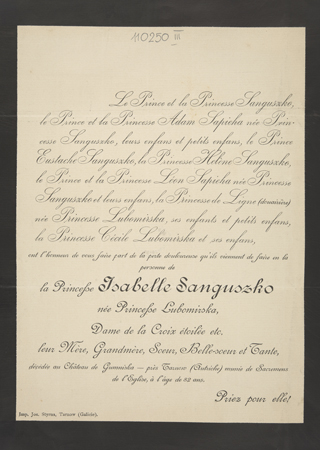 110250 III
Le Prince et la Princesse Sanguszko,
le Prince et la Princesse Adam Sapieha née Prin-
cesse Sanguszko, leurs enfans et petits enfans, le Prince
Eustache Sanguszko, la Princesse Hélène Sanguszko,
le Prince et la Princesse Léon Sapieha née Princesse
Sanguszko et leurs enfans, la Princesse de Ligne (douairière)
née Princesse Lubomirska, ses enfants et petits enfans,
la Princesse Cécile Lubomirska et ses enfans,
ont l'honneur de vous faire part de la perte douloureuse qu'ils viennent de faire en la
personne de
la Princesse Isabelle Sanguszko
née Princesse Lubomirska,
Dame de la Croix étoilée etc.
leur Mère, Grandmère, Soeur, Belle-soeur et Tante,
décédée au Château de Gumniska — près Tarnow (Autriche) munie de Sacremens
de l'Eglise, à l'âge de 82 ans.
Priez pour elle!
Imp. Jos. Styrna, Tarnow (Galicie).